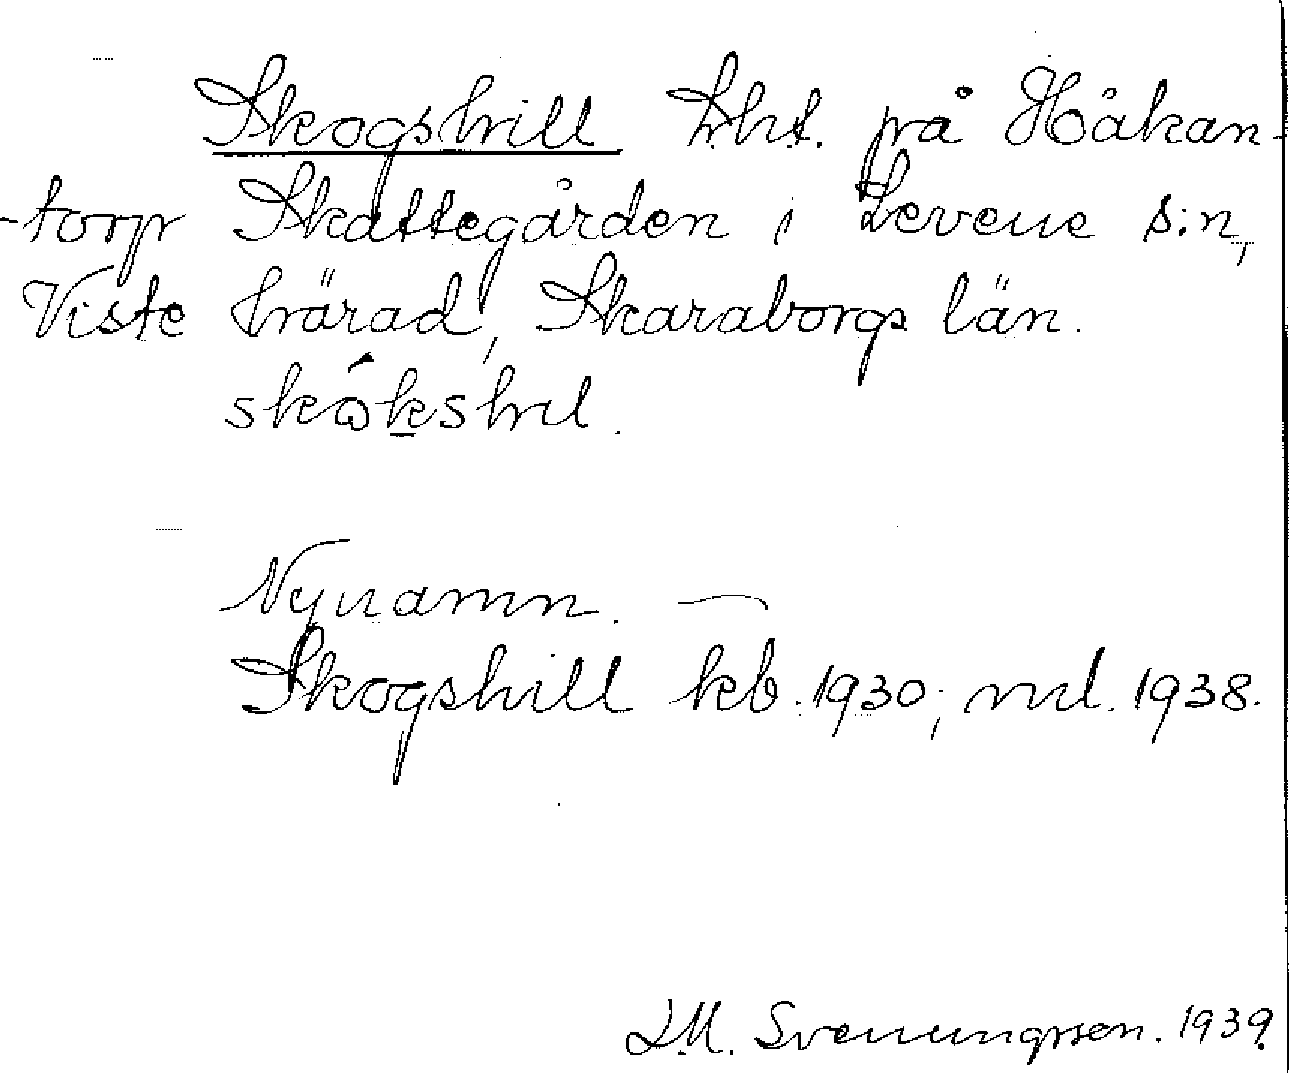 Skogshill Lht. på Håkan-
-torp Skattegården i Levene s:n,
Viste härad, Skaraborgs län.
skó̱kshıl.
Nynamn. —
Skogshill kb. 1930; md. 1938.
L.M. Svenungsson. 1939.